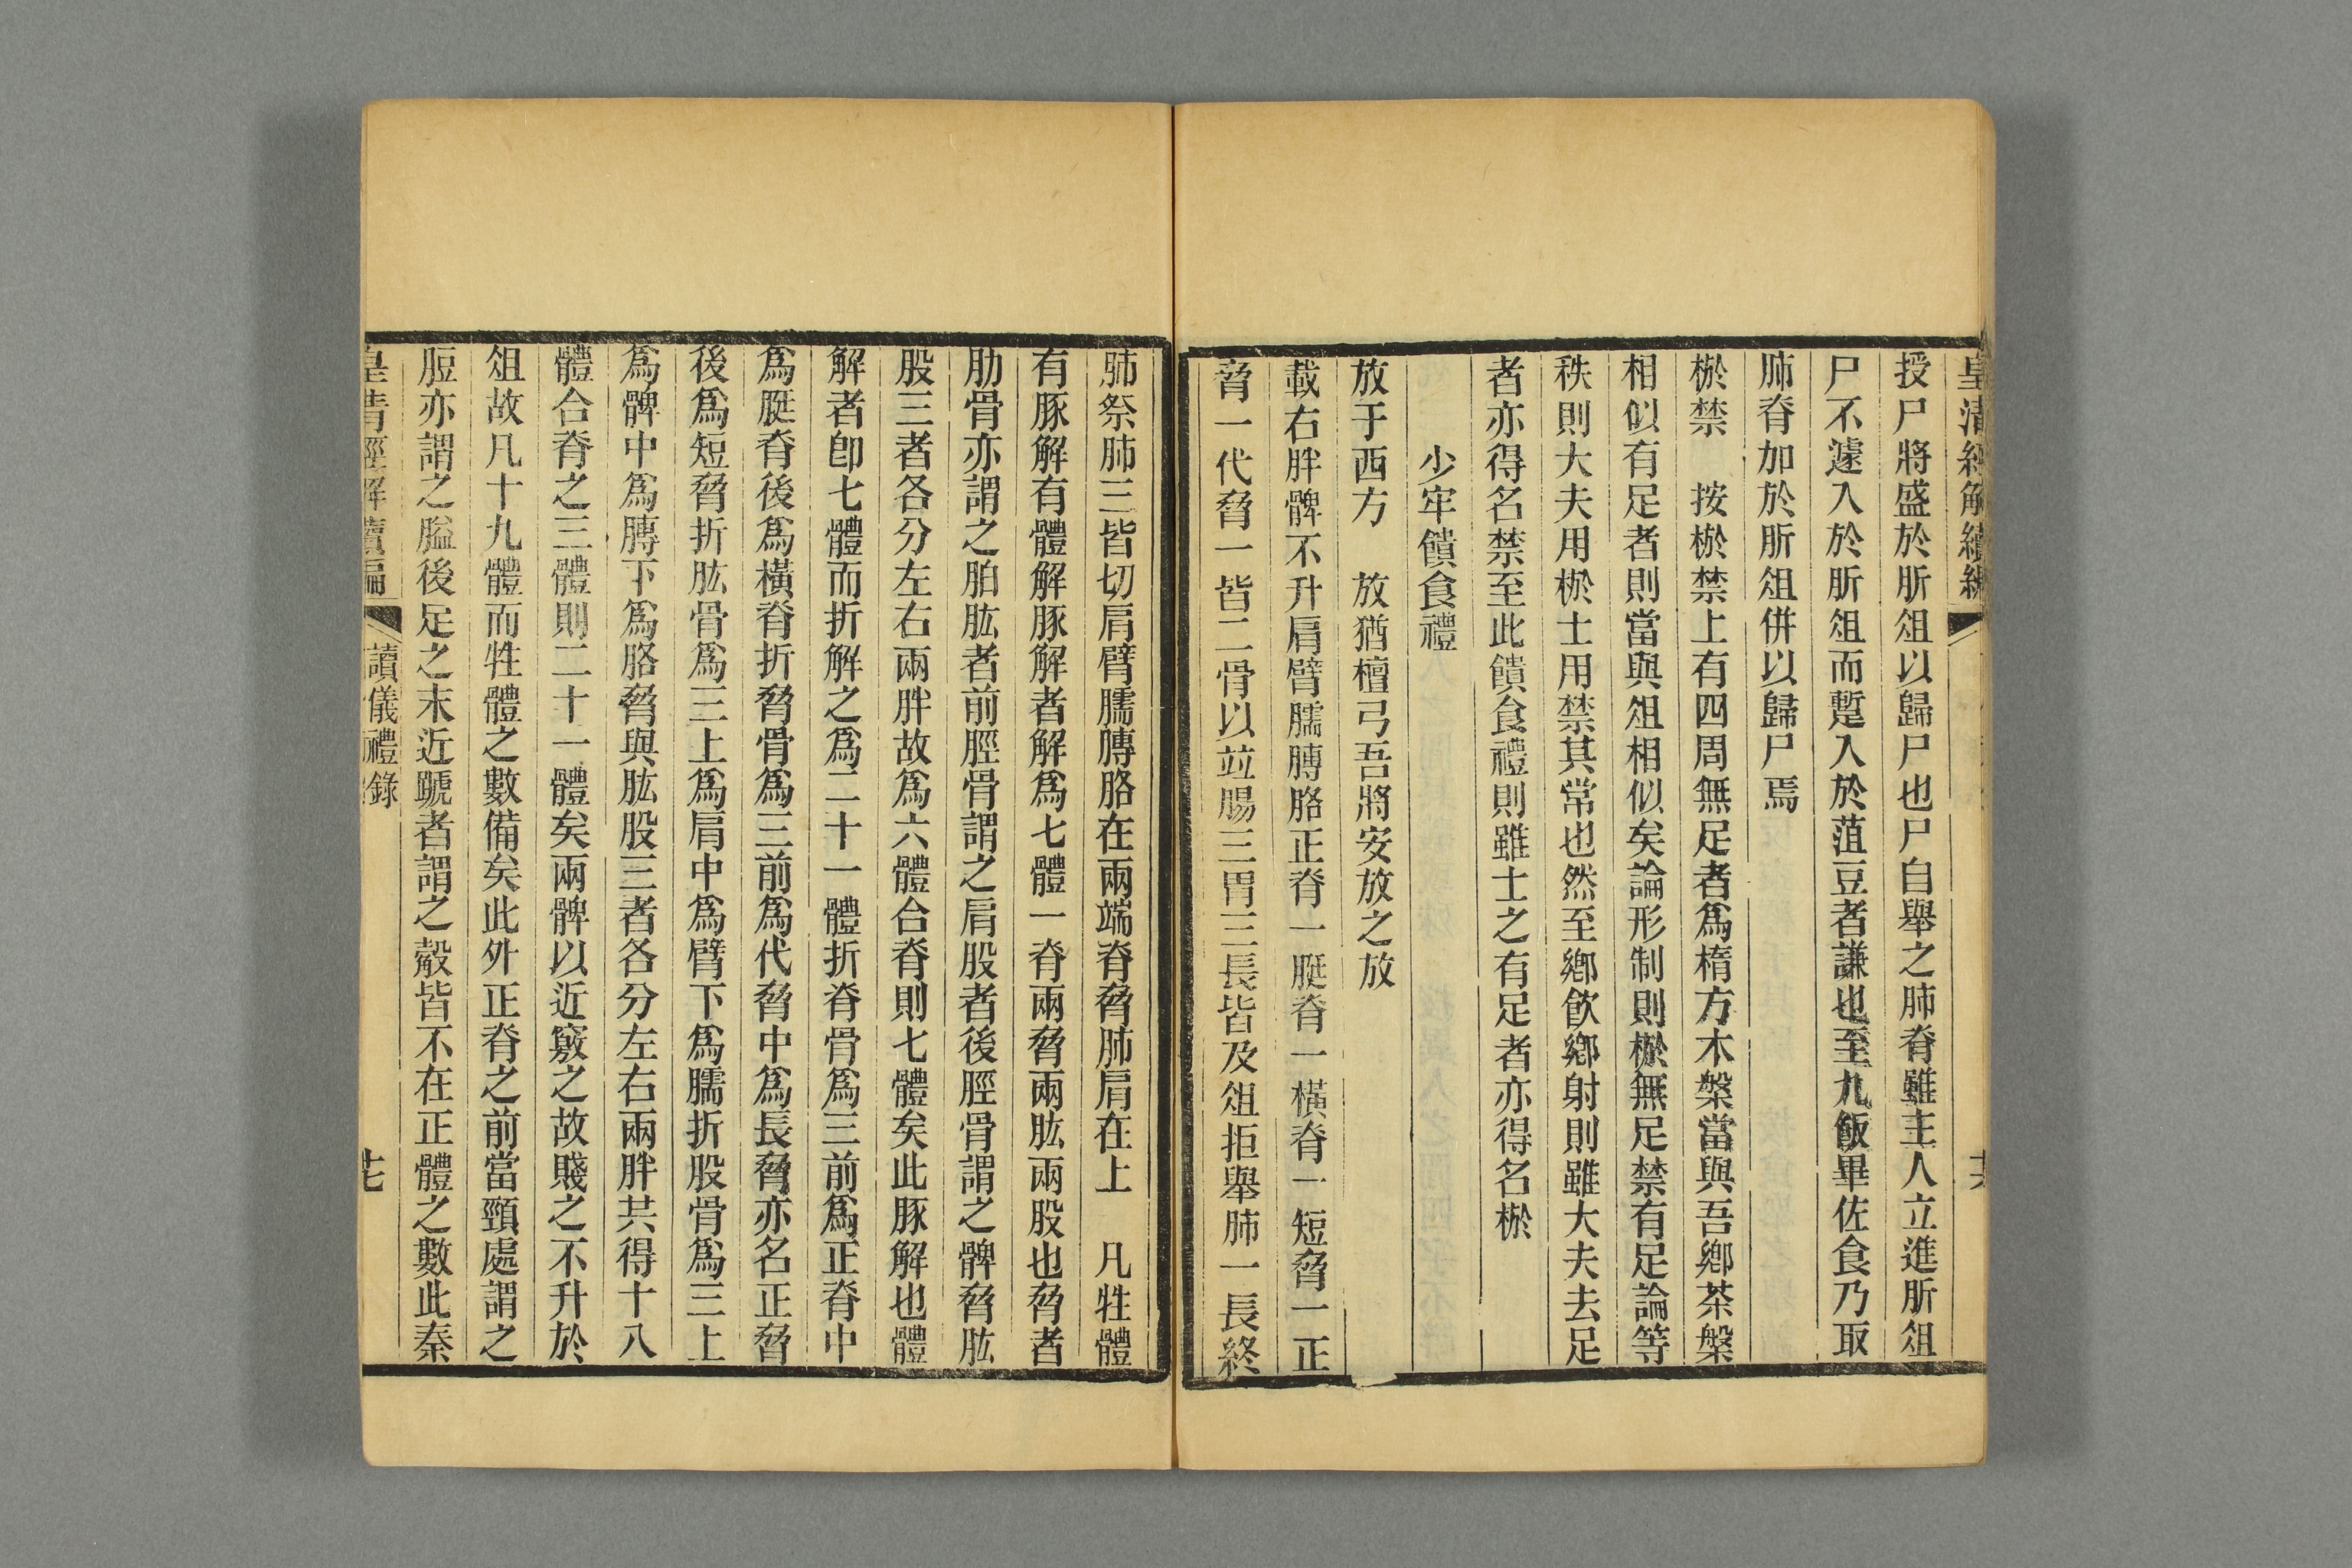 皇清經解續編
十六
授尸將盛於肵俎以歸尸也尸自舉之肺脊雖主人立進肵俎
尸不遽入於肵俎而蹔入於菹豆者謙也至九飯畢佐食乃取
肺脊加於肵俎併以歸尸焉
棜禁　按棜禁上有四周無足者爲楕方木槃當與吾鄉茶槃
相似有足者則當與俎相似矣論形制則棜無足禁有足論等
秩則大夫用棜士用禁其常也然至鄉飲鄉射則雖大夫去足
者亦得名禁至此饋食禮則雖士之有足者亦得名棜
少牢饋食禮
放于西方　放猶檀弓吾將安放之放
載右胖髀不升肩臂臑膊胳正脊一脡脊一橫脊一短脅一正
脅一代脅一皆二骨以竝腸三胃三長皆及俎拒舉肺一長終
肺祭肺三皆切肩臂臑膊胳在兩端脊脅肺肩在上　凡牲體
有豚解有體解豚解者解爲七體一脊兩脅兩肱兩股也脅者
肋骨亦謂之胉肱者前脛骨謂之肩股者後脛骨謂之髀脅肱
股三者各分左右兩胖故爲六體合脊則七體矣此豚解也體
解者卽七體而折解之爲二十一體折脊骨爲三前爲正脊中
爲脡脊後爲橫脊折脅骨爲三前爲代脅中爲長脅亦名正脅
後爲短脅折肱骨爲三上爲肩中爲臂下爲臑折股骨爲三上
爲髀中爲膊下爲胳脅與肱股三者各分左右兩胖共得十八
體合脊之三體則二十一體矣兩髀以近竅之故賤之不升於
俎故凡十九體而牲體之數備矣此外正脊之前當頸處謂之
脰亦謂之膉後足之末近蹏者謂之觳皆不在正體之數此秦
皇清經解續編
讀儀禮錄
十七